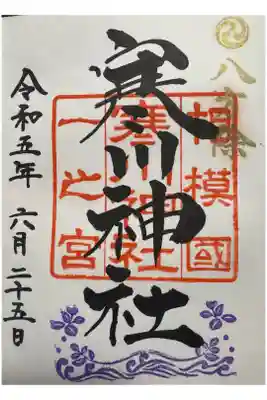 八方除
寒川神社
相模國
寒川神社
一之宮
令和五年 六月 二十五日